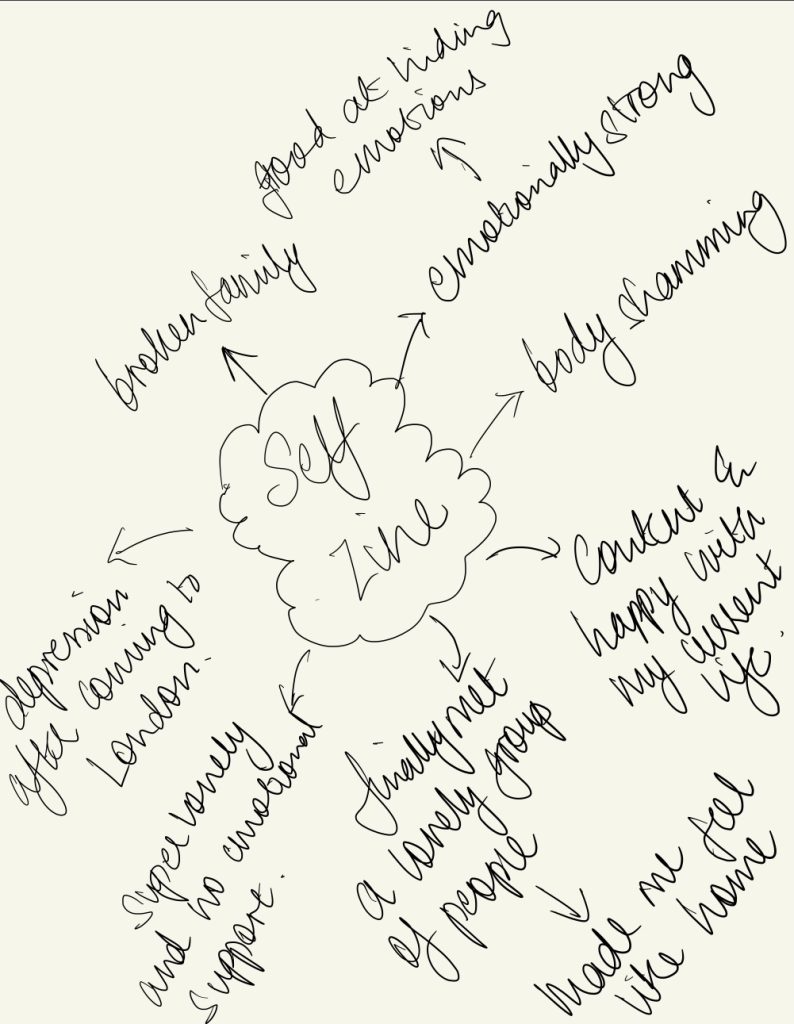 Self
Zine
broken family
emotionally strong
good at hiding
emotions
body shamming
content &
happy with
my current
life.
finally met
a lovely group
of people
made me feel
like home
super lonely
and no emotional
support.
depression
after coming to
London.